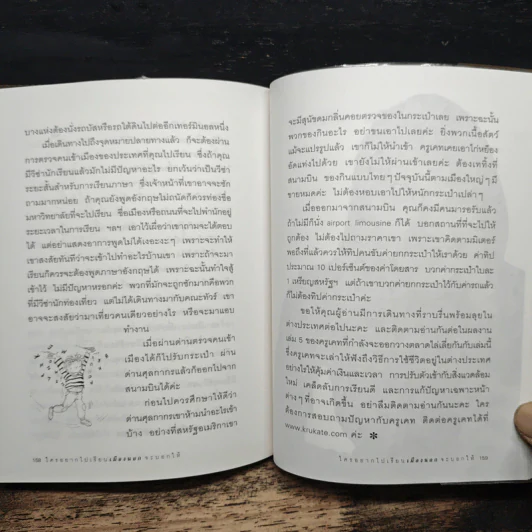 บางแห่งต้องนั่งรถบัสหรือรถใต้ดินไปต่ออีกเทอร์มินอลหนึ่ง
เมื่อเดินทางไปถึงจุดหมายปลายทางแล้ว ก็จะต้องผ่าน
การตรวจคนเข้าเมืองของประเทศที่คุณไปเรียน ซึ่งถ้าคุณ
มีวีซ่านักเรียนแล้วมักไม่มีปัญหาอะไร ยกเว้นว่าเป็นวีซ่า
ระยะสั้นสำหรับการเรียนภาษา ซึ่งเจ้าหน้าที่เขาอาจจะซัก
ถามมากหน่อย ถ้าคุณยังพูดอังกฤษไม่ถนัดก็ควรท่องชื่อ
มหาวิทยาลัยที่จะไปเรียน ชื่อเมืองหรือถนนที่จะไปพำนักอยู่
ระยะเวลาในการเรียน ฯลฯ เอาไว้เมื่อเวลาเขาถามจะได้ตอบ
ได้ แต่อย่าแสดงอาการพูดไม่ได้เงอะงะๆ เพราะจะทำให้
เขาสงสัยทันทีว่าจะเข้าไปทำอะไรบ้านเขา เพราะถ้าจะมา
เรียนก็ควรจะต้องพูดภาษาอังกฤษได้ เพราะฉะนั้นทำใจสู้
เข้าไว้ ไม่มีปัญหาหรอกค่ะ พวกที่มักจะถูกซักมากคือพวก
ที่มีวีซ่านักท่องเที่ยว แต่ไม่ได้เดินทางมากับคณะทัวร์ เขา
อาจจะสงสัยว่ามาเที่ยวคนเดียวอย่างไร หรือจะมาแอบ
ทำงาน
เมื่อผ่านด่านตรวจคนเข้า
เมืองได้ก็ไปรับกระเป๋า ผ่าน
ด่านศุลกากรแล้วก็ออกไปจาก
สนามบินได้ค่ะ
ก่อนไปควรศึกษาให้ดีว่า
ด่านศุลกากรเขาห้ามนำอะไรเข้า
บ้าง อย่างที่สหรัฐอเมริกาเขา
188 ใครอยากไปเรียนเมืองนอกจะบอกให้
จะมีสุนัขดมกลิ่นคอยตรวจของในกระเป๋าเลย เพราะฉะนั้น
พวกของกินอะไร อย่าขนเอาไปเลยค่ะ ยิ่งพวกเนื้อสัตว์
แม้จะแปรรูปแล้ว เขาก็ไม่ให้นำเข้า ครูเคทเคยเอาไก่หยอง
อัดแท่งไปด้วย เขายังไม่ให้ผ่านเข้าเลยค่ะ ต้องเททิ้งที่
สนามบิน ของกินแบบไทยๆ ปัจจุบันนี้ตามเมืองใหญ่ๆ มี
ขายหมดค่ะ ไม่ต้องหอบเอาไปให้หนักกระเป๋าเปล่าๆ
เมื่อออกมาจากสนามบิน คุณก็คงมีคนมารอรับแล้ว
ถ้าไม่มีก็นั่ง airport limousine ก็ได้ บอกสถานที่ที่จะไปให้
ถูกต้อง ไม่ต้องไปถามราคาเขา เพราะเขาคิดตามมิเตอร์
พอถึงที่แล้วควรให้ทิปคนขับค่ายกกระเป๋าให้เราด้วย ค่าทิป
ประมาณ 10 เปอร์เซ็นต์ของค่าโดยสาร บวกค่ากระเป๋าใบละ
1 เหรียญสหรัฐฯ แต่ถ้าเขาบวกค่ายกกระเป๋าไว้กับค่ารถแล้ว
ก็ไม่ต้องทิปค่ากระเป๋าค่ะ
ขอให้คุณผู้อ่านมีการเดินทางที่ราบรื่นพร้อมลุยใน
ต่างประเทศต่อไปนะคะ และติดตามอ่านกันต่อในผลงาน
เล่ม 5 ของครูเคทที่กำลังจะออกวางตลาดไล่เลี่ยกันกับเล่มนี้
ซึ่งครูเคทจะเล่าให้ฟังถึงวิธีการใช้ชีวิตอยู่ในต่างประเทศ
อย่างไรให้คุ้มค่าเงินและเวลา การปรับตัวเข้ากับสิ่งแวดล้อม
ใหม่ เคล็ดลับการเรียนดี และการแก้ปัญหาเฉพาะหน้า
ต่างๆ ที่อาจเกิดขึ้น อย่าลืมติดตามอ่านกันนะคะ ใคร
ต้องการสอบถามปัญหากับครูเคท ติดต่อครูเคทได้ที่
www.krukate.com ค่ะ ✽
ใครอยากไปเรียนเมืองนอกจะบอกให้ 189